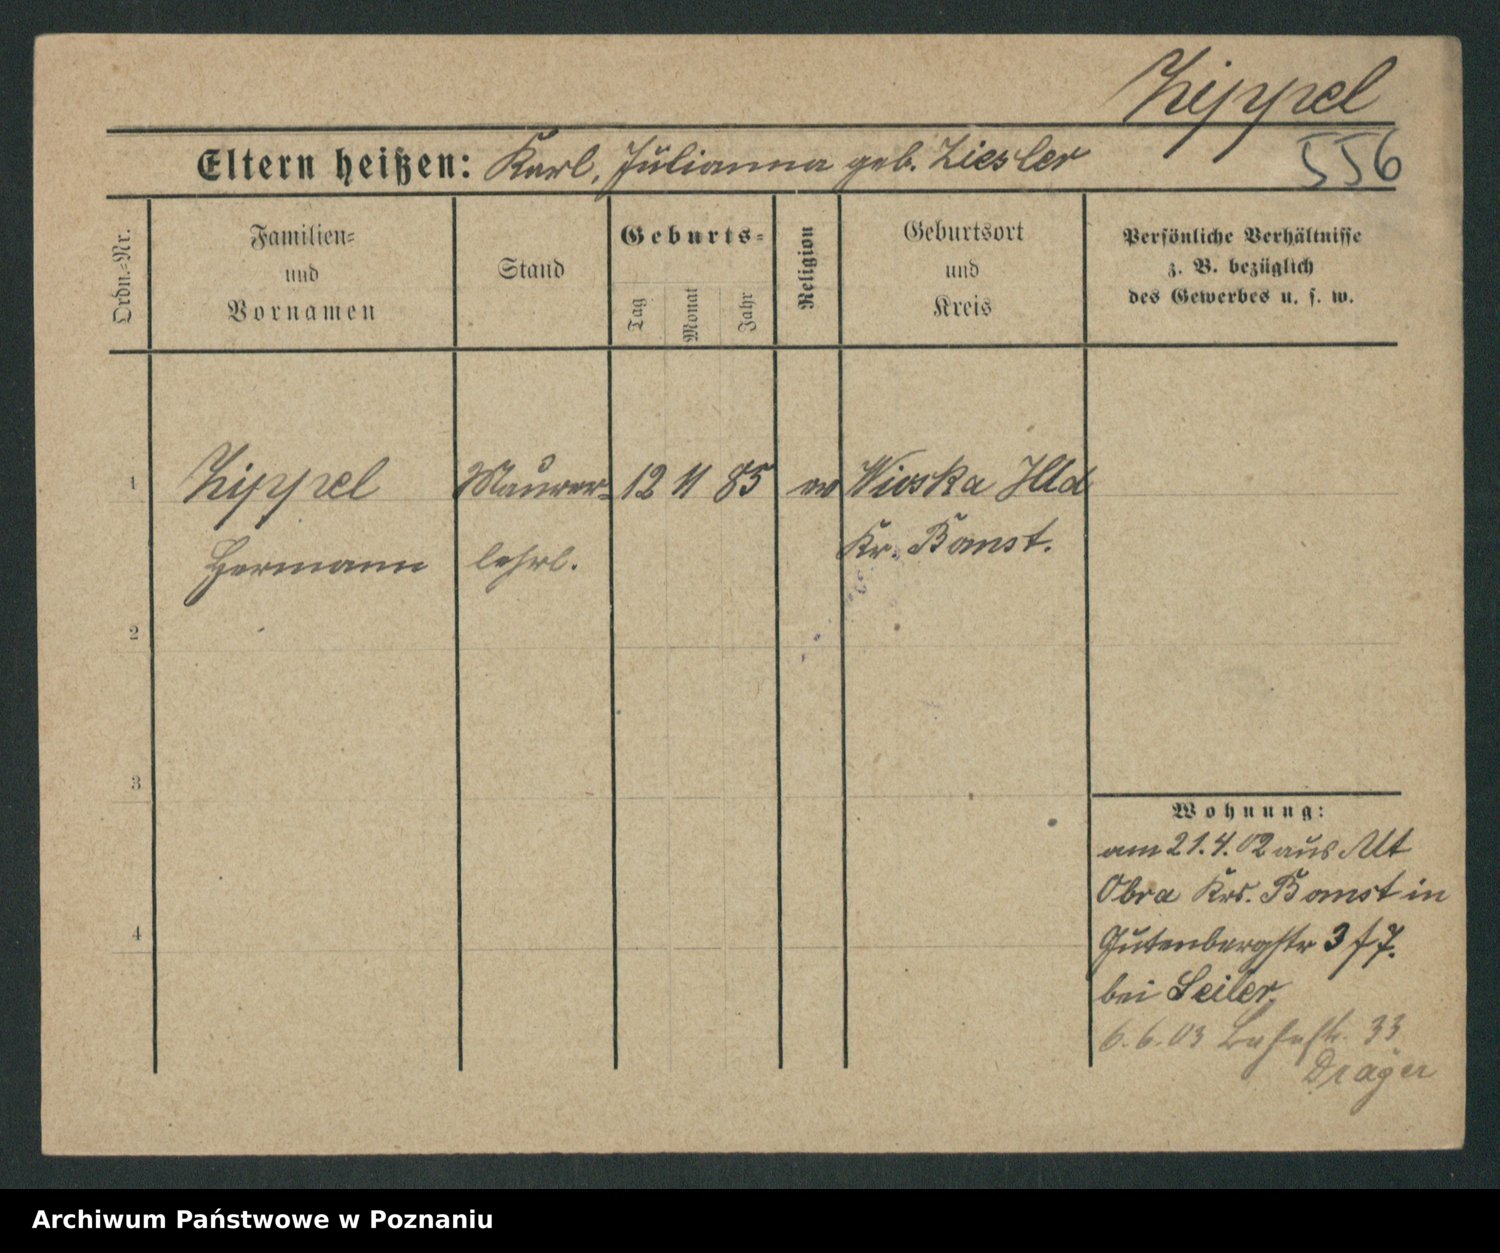 Zippel
556
Eltern heißen: Karl, Julianna geb. Ziesler
Ordn.-Nr.
Familien-
und
Vornamen
Stand
Geburts-
Tag
Monat
Jahr
Religion
Geburtsort
und
Kreis
Persönliche Verhältnisse
z. B. bezüglich
des Gewerbes u. s. w.
1 Zippel Maurer- 12 11 85 ev Wioska Hld
Hermann lehrl. Kr. Bomst.
2
3
4
Wohnung:
am 21.4.02 aus Alt
Obra Krs. Bomst in
Gutenbergstr 3
bei Seiler.
6.6.03 33
Dräger
Archiwum Państwowe w Poznaniu